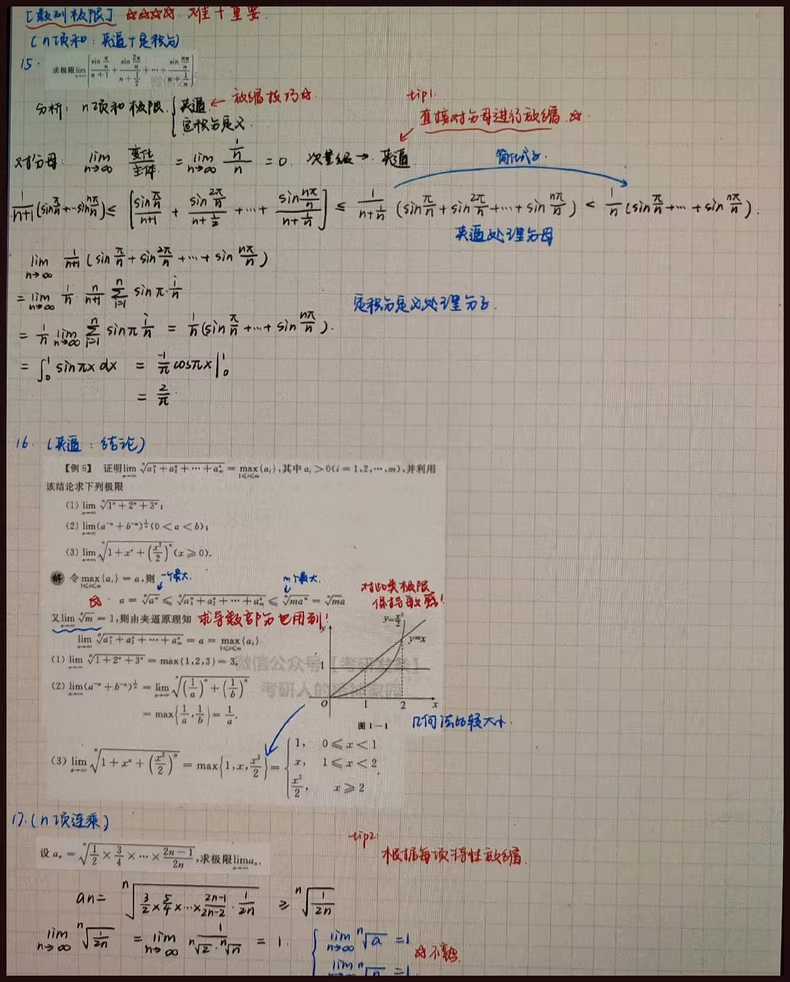 [数列极限] ☆☆☆☆ 难+重要
(n项和：夹逼+定积分)
15.
求极限lim n→∞ [sin π/n / (n+1) + sin 2π/n / (n+1/2) + ⋯ + sin nπ/n / (n+1/n)]
分析：n项和极限 { 夹逼 ← 放缩技巧☆
定积分定义.
tip1.
直接对分母进行放缩 ☆
对分母： lim n→∞ 变化/主体 = lim n→∞ (1/n)/n = 0. 次量级 → 夹逼
简化式子
1/(n+1) (sin π/n+⋯sin nπ/n) ≤ [sin π/n / (n+1) + sin 2π/n / (n+1/2) + ⋯ + sin nπ/n / (n+1/n)] ≤ 1/(n+1/n) (sin π/n + sin 2π/n + ⋯ + sin nπ/n) < 1/n (sin π/n + ⋯ + sin nπ/n).
夹逼处理分母
lim n→∞ 1/(n+1) (sin π/n + sin 2π/n + ⋯ + sin nπ/n)
= lim n→∞ 1/n · n/(n+1) ∑ i=1 n sin π·i/n
定积分定义处理分子.
= 1/n lim n→∞ ∑ i=1 n sin π i/n = 1/n (sin π/n + ⋯ + sin nπ/n).
= ∫₀¹ sin πx dx = -1/π cos πx |₀¹
= 2/π
16. (夹逼：结论)
【例5】 证明 lim n→∞ ⁿ√(a₁ⁿ+a₂ⁿ+⋯+aₘⁿ) = max 1≤i≤m {aᵢ},其中 aᵢ>0(i=1,2,⋯,m),并利用
该结论求下列极限
(1) lim n→∞ ⁿ√(1ⁿ+2ⁿ+3ⁿ);
(2) lim n→∞ (a⁻ⁿ+b⁻ⁿ)^(1/n) (0<a<b);
(3) lim n→∞ ⁿ√(1+xⁿ+(x²/2)ⁿ) (x≥0).
解 令 max 1≤i≤m {aᵢ} = a,则 一个最大. m个最大.
☆ a = ⁿ√aⁿ ≤ ⁿ√(a₁ⁿ+a₂ⁿ+⋯+aₘⁿ) ≤ ⁿ√(maⁿ) = ⁿ√m a
对此类极限
保持敏感！
又 lim n→∞ ⁿ√m = 1,则由夹逼原理知 求导数部分也用到！
lim n→∞ ⁿ√(a₁ⁿ+a₂ⁿ+⋯+aₘⁿ) = a = max 1≤i≤m {aᵢ}
(1) lim n→∞ ⁿ√(1+2ⁿ+3ⁿ) = max{1,2,3} = 3;
(2) lim n→∞ (a⁻ⁿ+b⁻ⁿ)^(1/n) = lim n→∞ ⁿ√((1/a)ⁿ+(1/b)ⁿ)
= max{1/a,1/b} = 1/a.
y y=x²/2 y=x
1
O 1 2 x
图1-1
几何法比较大小.
(3) lim n→∞ ⁿ√(1+xⁿ+(x²/2)ⁿ) = max{1,x,x²/2} = { 1, 0≤x<1
x, 1≤x<2
x²/2, x≥2
17. (n项连乘)
设 aₙ = ⁿ√(1/2 × 3/4 × ⋯ × (2n-1)/2n),求极限 lim n→∞ aₙ.
tip2.
根据每项特性放缩
an = ⁿ√(3/2 × 5/4 × ⋯ × (2n-1)/(2n-2) · 1/2n) ≥ ⁿ√(1/2n)
lim n→∞ ⁿ√(1/2n) = lim n→∞ 1/(ⁿ√2 · ⁿ√n) = 1. { lim n→∞ ⁿ√a = 1
☆不熟
lim ⁿ√n = 1